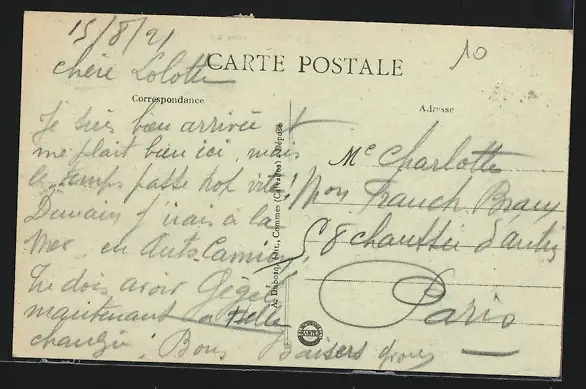 15/8/21
10
CARTE POSTALE
chère Lolotte
Correspondance
Adresse
Je suis bien arrivée et
me plait bien ici, mais
le temps passe trop vite!
Demain j'irais à la
Mer en Auto Camion,
Tu dois avoir Gégé
maintenant
changé! Bons Baisers
Me Charlotte
Mon Franch
58 chaussée d'antin
Paris
A. Dubosq, édit., Commes (Calvados) Déposé